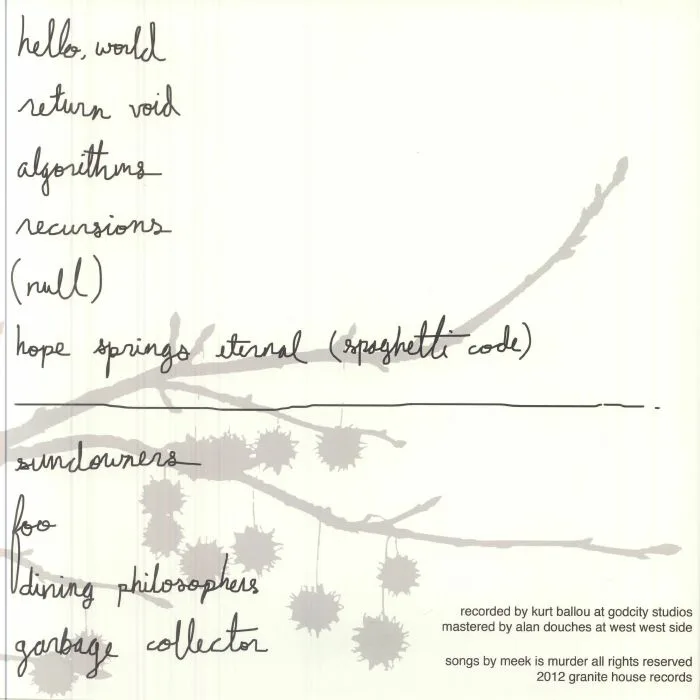 hello, world
return void
algorithms
recursions
(null)
hope springs eternal (spaghetti code)
sundowners
foo
dining philosophers
garbage collector
recorded by kurt ballou at godcity studios
mastered by alan douches at west west side
songs by meek is murder all rights reserved
2012 granite house records